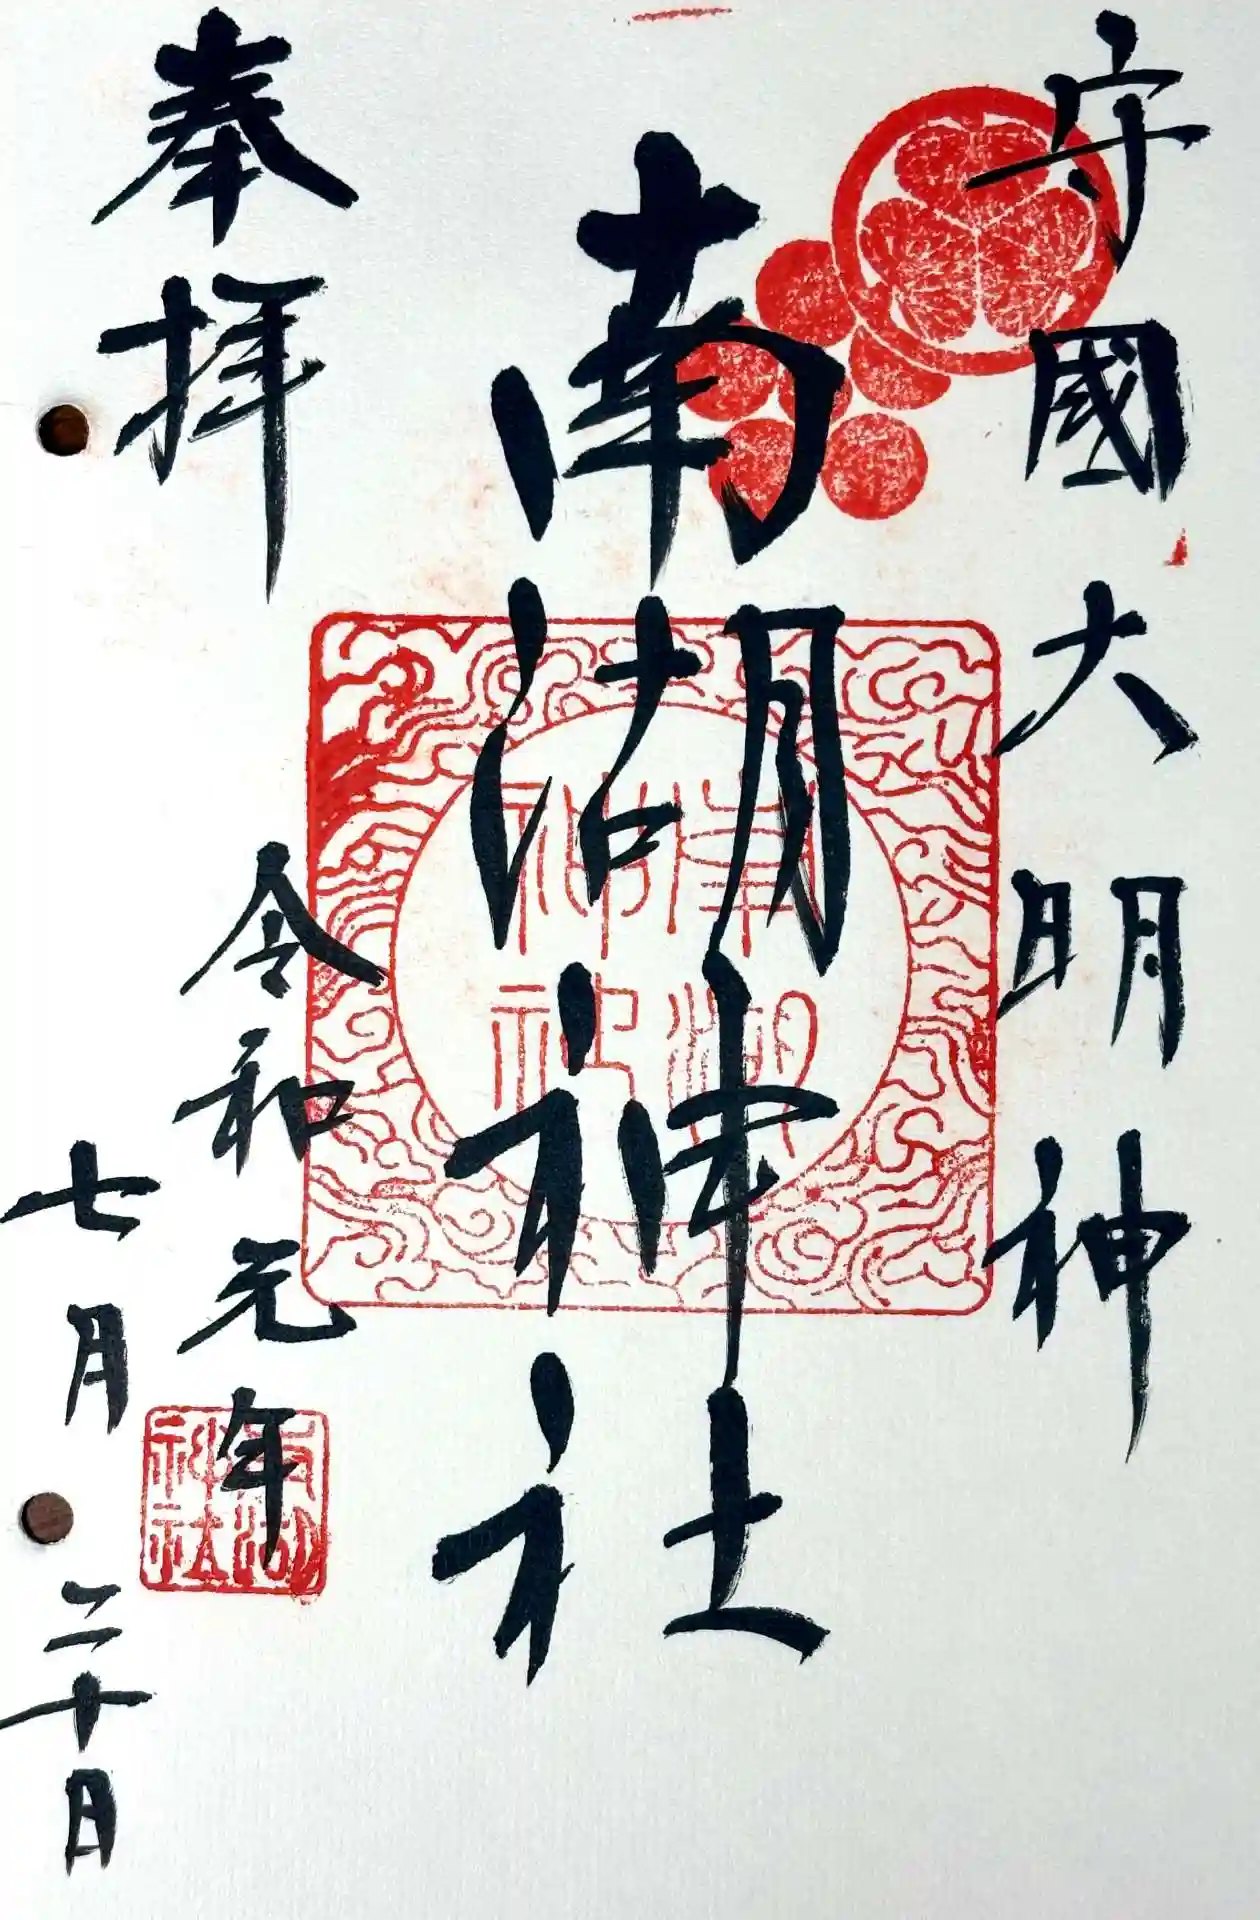 守國大明神
南湖神社
奉拝
令和元年
七月二十日
南湖
神社
南湖
神社